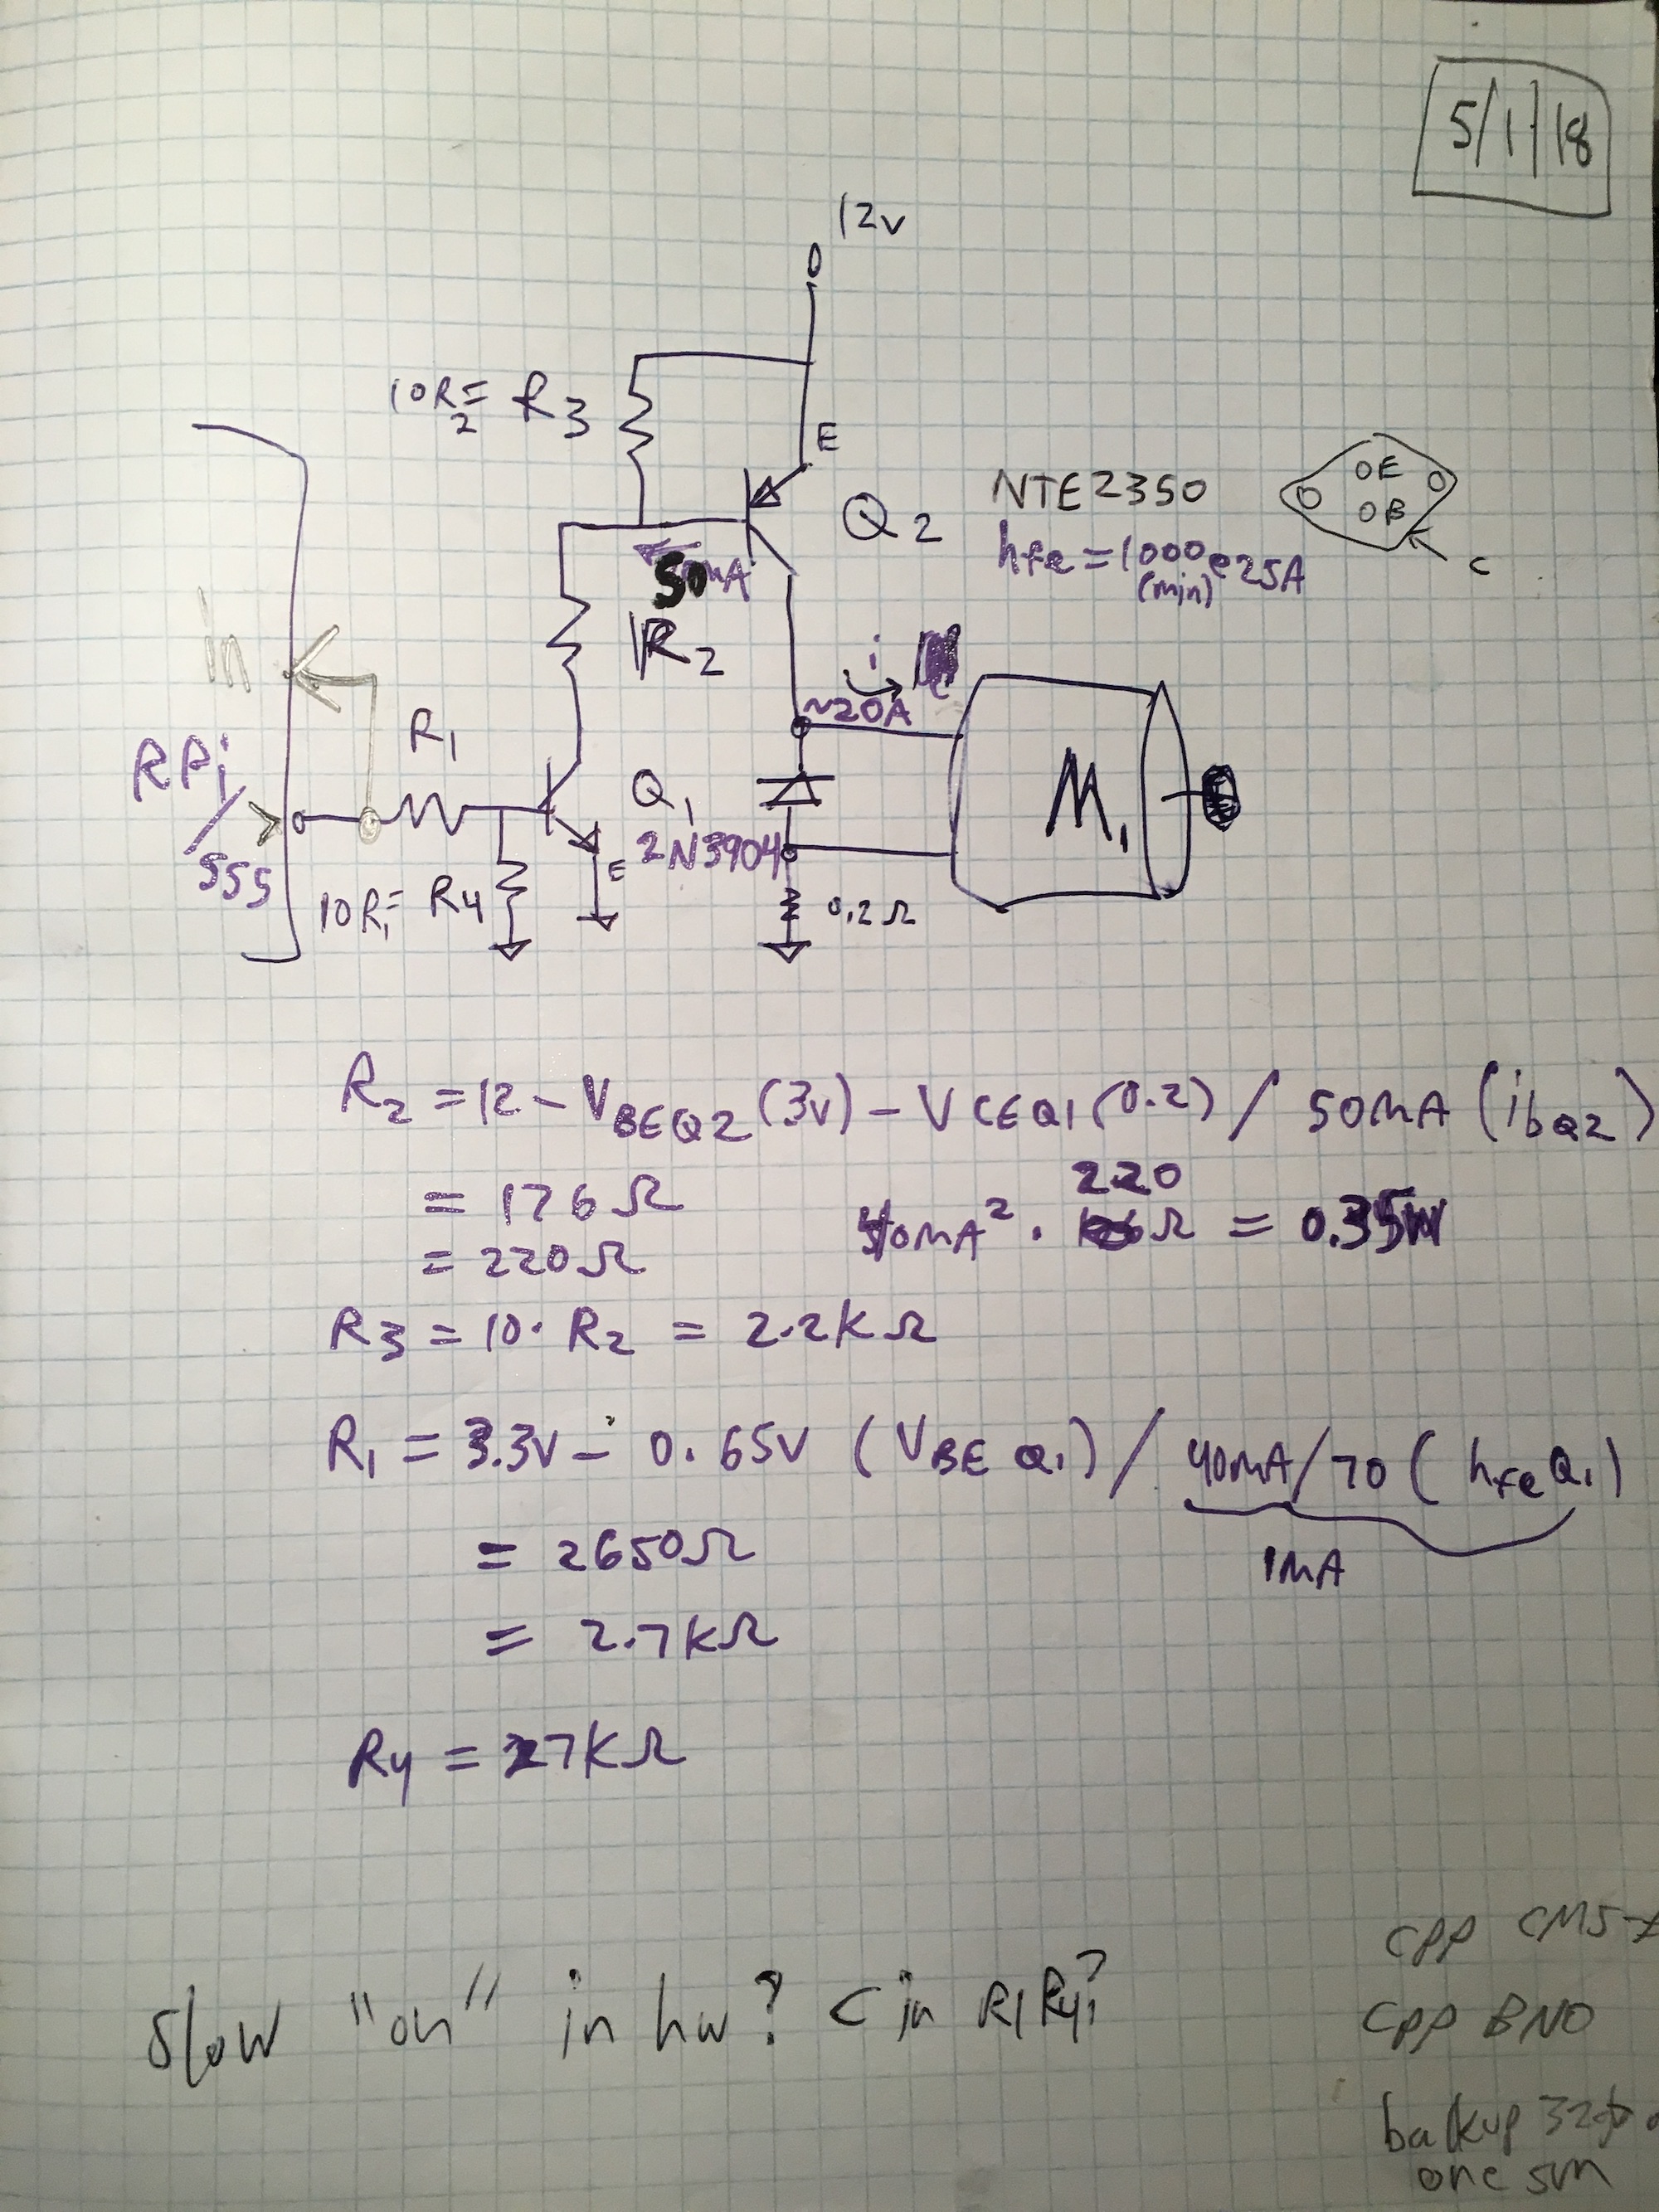 5/1/18
12v
10R2= R3
E
Q2
NTE2350
hfe=1000@25A
(min)
OE
OB
C
50mA
R2
in
i
~20A
R1
RPi
/
555
Q1
2N3904
E
M1
10R1= R4
0.2Ω
R2 = 12 - VBEQ2 (3v) - VCEQ1 (0.2) / 50mA (ibQ2)
= 176Ω
220
40mA² · Ω = 0.35W
= 220Ω
R3 = 10· R2 = 2.2kΩ
R1 = 3.3V - 0.65V (VBE Q1) / 40mA/70 (hfeQ1)
1mA
= 2650Ω
= 2.7kΩ
R4 = 27KΩ
Slow "on" in hw? C in R1R4?
CPP CMS-
CPP BNO
backup 32
one sm